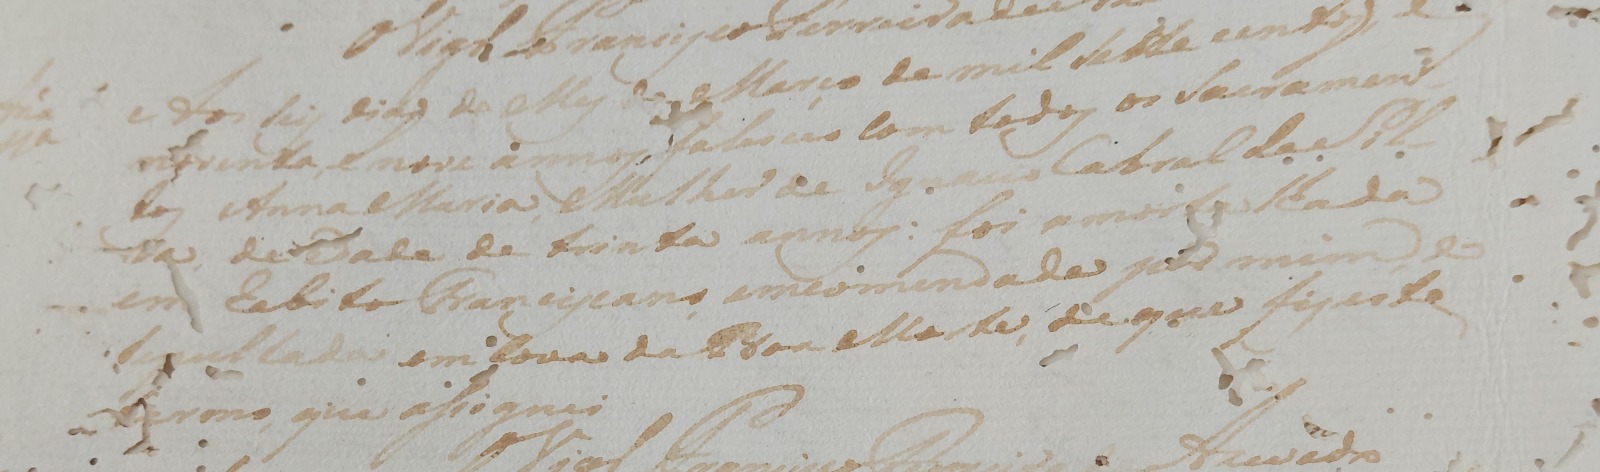 O Vigr.o Francisco Ferreira de
Aos seis dias do Mes de Março de mil sette centos, e
noventa, e nove annos, faleceo com todos os Sacramen-
tos Anna Maria, Mulher de Ignacio Cabral da Sil-
va, de idade de trinta annos: foi amortalhada
em Habito Franciscano, emcomendada por mim, e
sepultada em Cova da Boa Morte, de que fiz este
termo, que assignei
O Vigr.o Francisco Ferreira de Azevedo